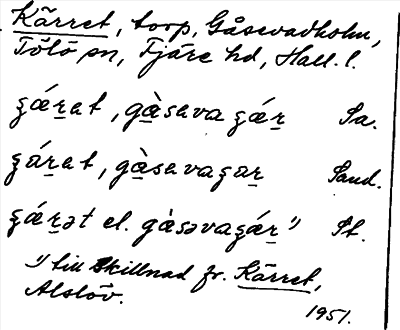 Kärret, torp, Gåsevadholm,
Tölö sn, Fjäre hd, Hall. l.
ʒǽṟet, gàsevaʒǽṟ Sa.
ʒáṟet, gàsevaʒaṟ Sand.
ʒǽṟət el. gàsəvaʒǽṟ ¹⁾ St.
¹⁾ till skillnad fr. Kärret,
Alslöv.
1951.